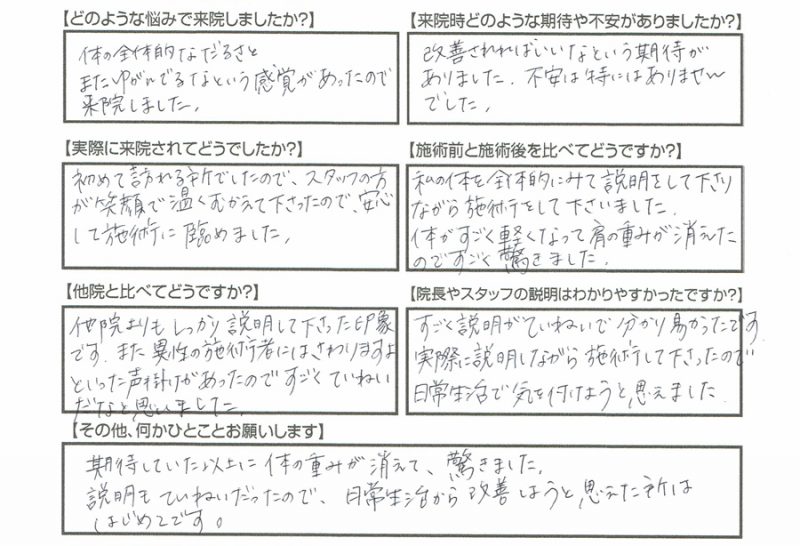 【どのような悩みで来院しましたか?】
体の全体的なだるさと
またゆがんでるなという感覚があったので
来院しました。
【来院時どのような期待や不安がありましたか?】
改善されればいいなという期待が
ありました。不安は特にはありません
でした。
【実際に来院されてどうでしたか?】
初めて訪れる所でしたので、スタッフの方
が笑顔で温くむかえて下さったので、安心
して施術に臨めました。
【施術前と施術後を比べてどうですか?】
私の体を全体的にみて説明をして下さり
ながら施術をして下さいました。
体がすごく軽くなって肩の重みが消えた
のですごく驚きました。
【他院と比べてどうですか?】
他院よりもしっかり説明して下さった印象
です。また異性の施術者にはさわりますよ
といった声掛けがあったのですごくていねい
だなと思いました。
【院長やスタッフの説明はわかりやすかったですか?】
すごく説明がていねいで分かり易かったです。
実際に説明しながら施術して下さったので
日常生活で気を付けようと思えました。
【その他、何かひとことお願いします】
期待していた以上に体の重みが消えて、驚きました。
説明もていねいだったので、日常生活から改善しようと思えた所は
はじめてです。